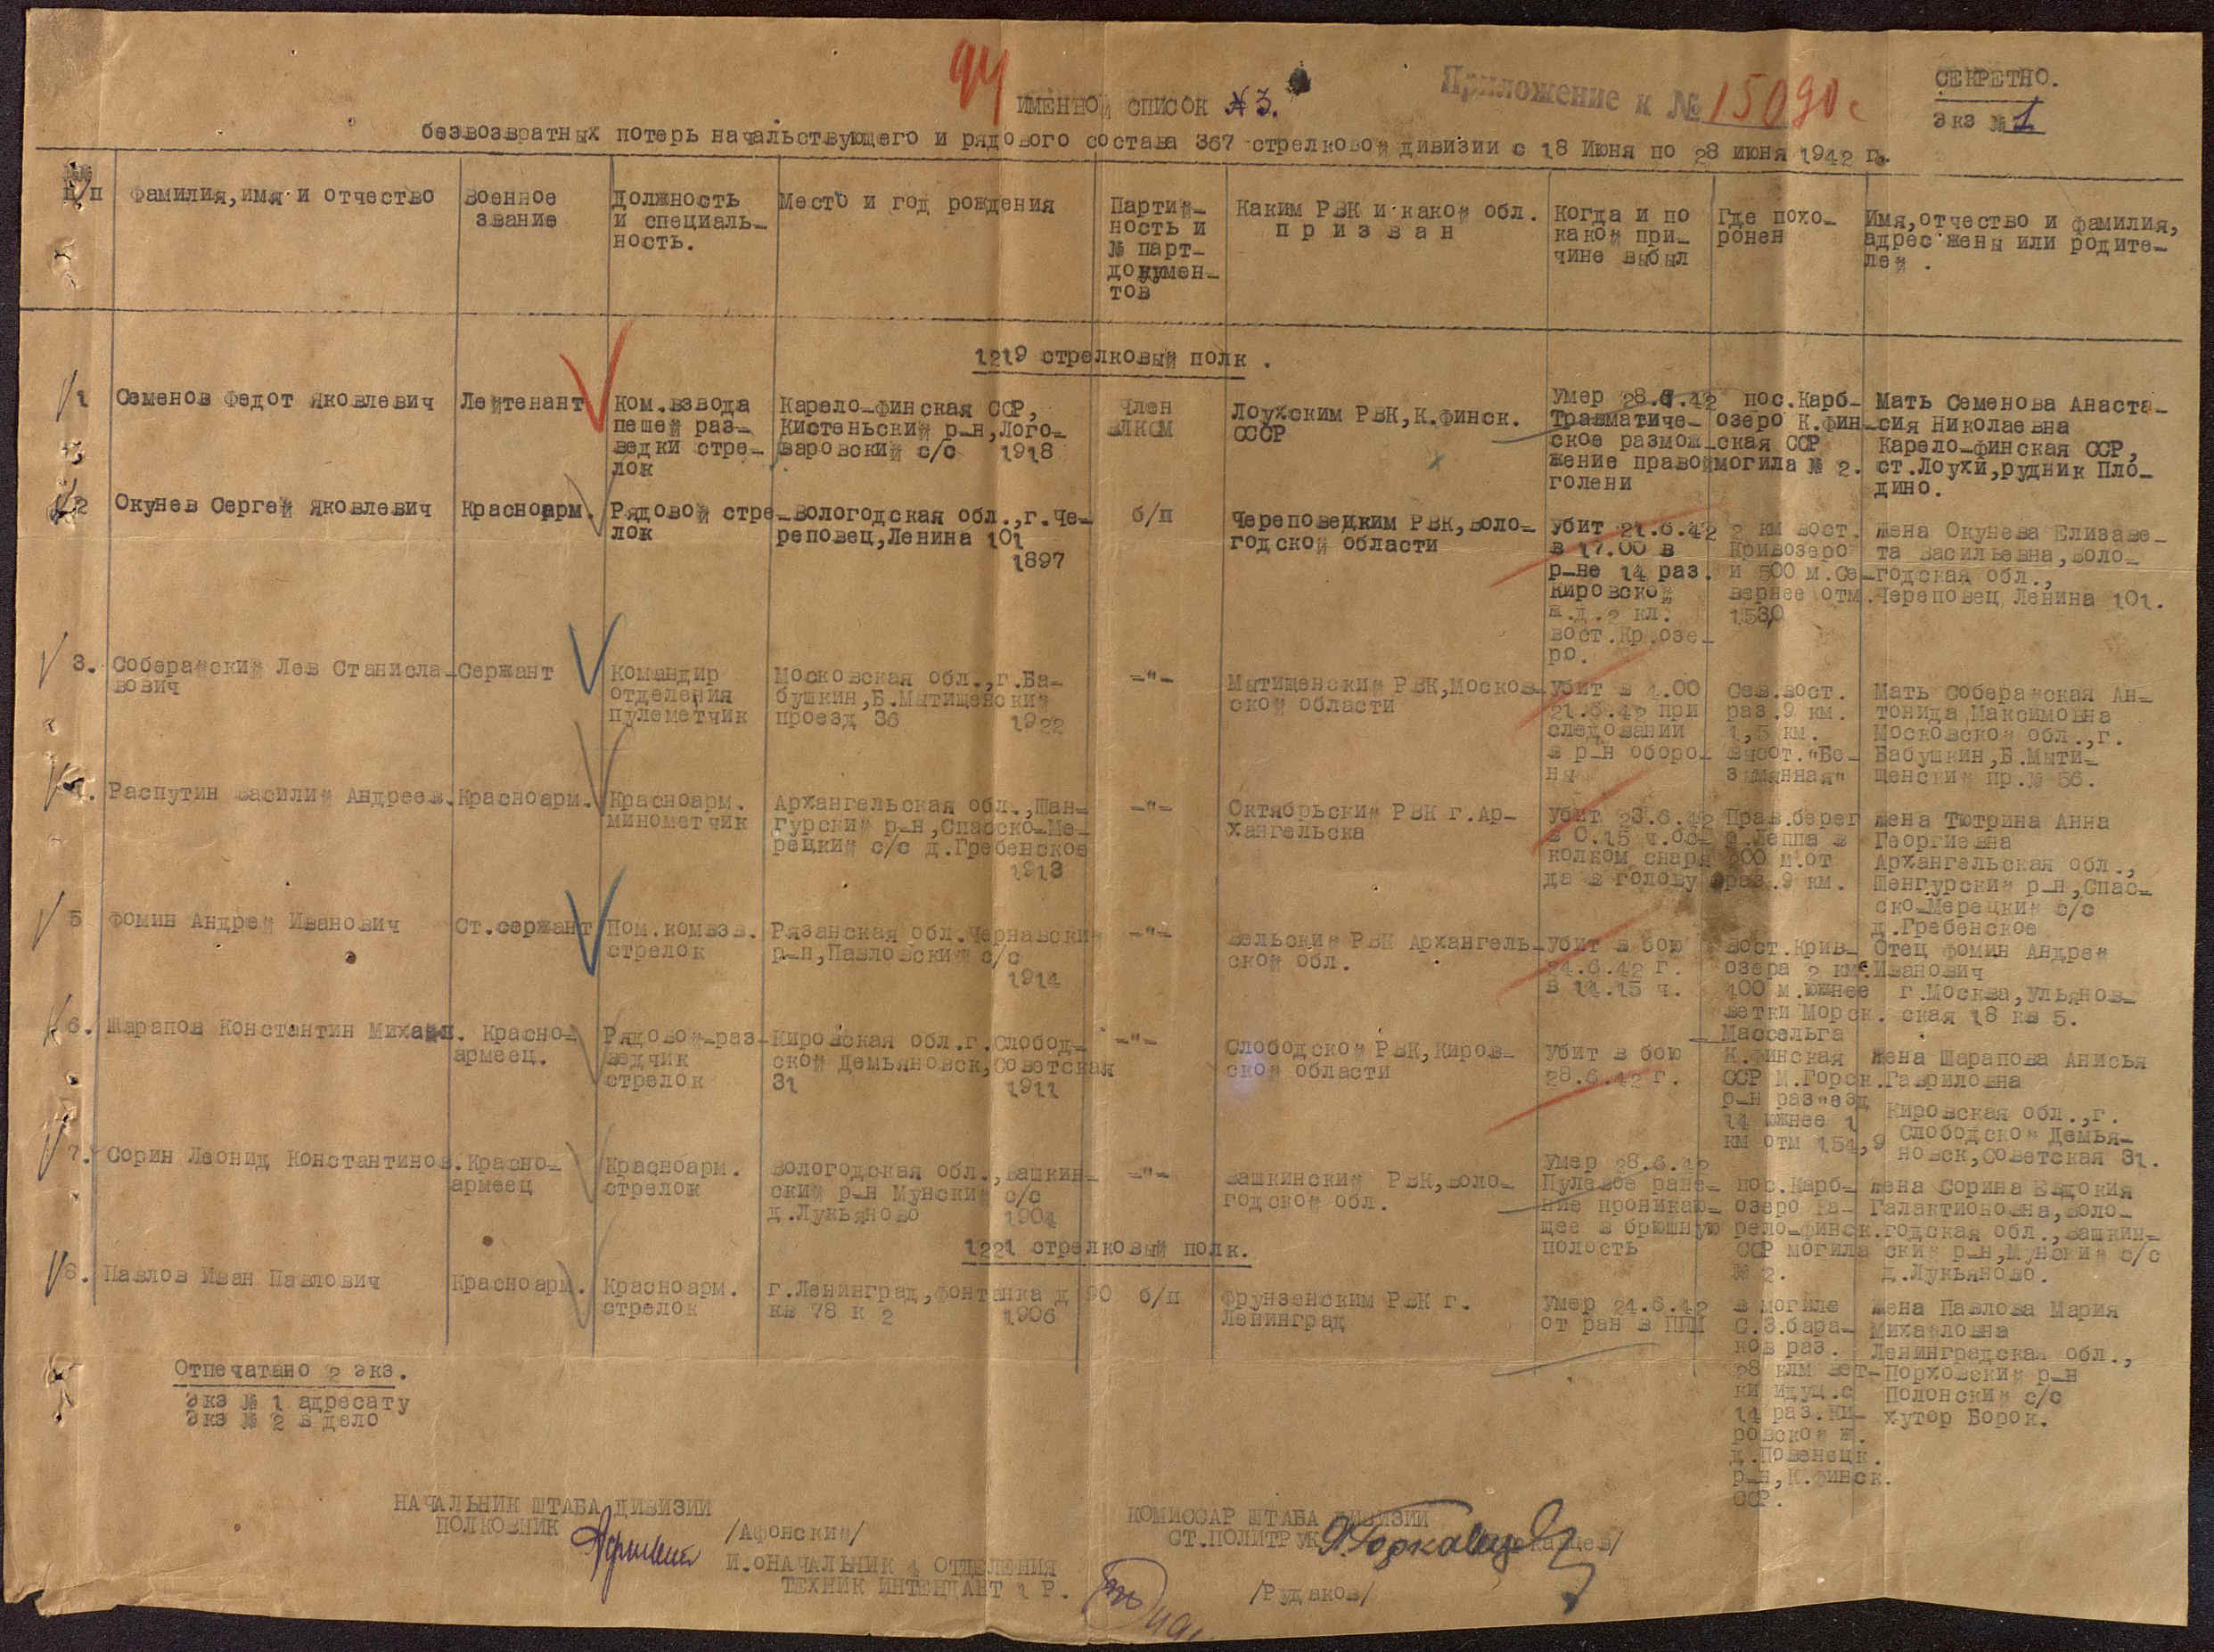 94
ИМЕННОЙ СПИСОК № 3.
Приложение к № 15090с
СЕКРЕТНО.
Экз № 1
безвозвратных потерь начальствующего и рядового состава 367 стрелковой дивизии с 18 Июня по 28 июня 1942 г.
№№ п/п
Фамилия, имя и отчество
Военное
звание
Должность
и специаль-
ность.
Место и год рождения
Партий-
ность и
№ парт-
докумен-
тов
Каким РВК и какой обл.
призван
Когда и по
какой при-
чине выбыл
Где похо-
ронен
Имя, отчество и фамилия,
адрес жены или родите-
лей.
1219 стрелковый полк.
1
Семенов Федот Яковлевич
Лейтенант
Ком.взвода
пешей раз-
ведки стре-
лок
Карело-финская ССР,
Кистеньский р-н, Лого-
варовский с/с 1918
Член
ВЛКСМ
Лоухским РВК, К.Финск.
СССР
Умер 28.6.42
Травматиче-
ское размож-
жение правой
голени
пос.Карб-
озеро К.фин-
ская ССР
могила № 2.
Мать Семенова Анаста-
сия Николаевна
Карело-финская ССР,
ст.Лоухи, рудник Пло-
дино.
2
Окунев Сергей Яковлевич
Красноарм.
Рядовой стре-
лок
Вологодская обл., г.Че-
реповец, Ленина 101
1897
б/п
Череповецким РВК, Воло-
годской области
Убит 21.6.42
в 17.00 в
р-не 14 раз.
Кировской
ж.д. 2 кл.
вост.Кр.озе-
ро.
2 км вост.
Кривозеро
и 500 м.се-
вернее отм.
153,0
Жена Окунева Елизаве-
та Васильевна, Воло-
годская обл.,
Череповец Ленина 101.
3.
Соберайский Лев Станисла-
вович
Сержант
Командир
отделения
пулеметчик
Московская обл., г.Ба-
бушкин, Б.Мытищенский
проезд 36 1922
-"-
Мытищенский РВК, Москов-
ской области
Убит в 1.00
21.6.42 при
следовании
в р-н оборо-
ны
Сев.вост.
раз.9 км.
1,5 км.
высот."Бе-
зымянная"
Мать Соберайская Ан-
тонида Максимовна
Московской обл., г.
Бабушкин, Б.Мыти-
щенский пр.№ 56.
4.
Распутин Василий Андреев.
Красноарм.
Красноарм.
минометчик
Архангельская обл., Шан-
гурский р-н, Спасско-Ме-
рецкий с/с д.Гребенское
1913
-"-
Октябрьский РВК г.Ар-
хангельска
Убит 23.6.42
в 0.15 ч.ос-
колком снаря
да в голову
Прав.берег
р.Леппа в
200 м.от
раз.9 км.
Жена Тютрина Анна
Георгиевна
Архангельская обл.,
Шенгурский р-н, Спас-
ско-Мерецкий с/с
д.Гребенское
5
Фомин Андрей Иванович
Ст.сержант
Пом.комвзв.
стрелок
Рязанская обл.Чернавский
р-н, Павловский с/с
1914
-"-
Вельский РВК Архангель-
ской обл.
Убит в бою
24.6.42 г.
в 14.15 ч.
Вост.Крив-
озера 2 км.
100 м.южнее
ветки Морск.
Массельга
Отец Фомин Андрей
Иванович
г.Москва, Ульянов-
ская 18 кв 5.
6.
Шарапов Константин Михайл.
Красно-
армеец.
Рядовой-раз-
ведчик
стрелок
Кировская обл.г.Слобод-
ской Демьяновск, Советская
31 1911
-"-
Слободской РВК, Киров-
ской области
Убит в бою
28.6.42 г.
К.финская
ССР М.Горск.
р-н раз"езд
14 южнее 1
км отм 154,9
Жена Шарапова Анисья
Гавриловна
Кировская обл., г.
Слободской Демья-
новск, Советская 31.
7.
Сорин Леонид Константинов.
Красно-
армеец
Красноарм.
стрелок
Вологодская обл., Вашкин-
ский р-н Мунский с/с
д.Лукьяново 1904
-"-
Вашкинский РВК, Воло-
годской обл.
Умер 28.6.42
Пулевое ране-
ние проникаю-
щее в брюшную
полость
пос.Карб-
озеро Ка-
рело-финск.
ССР могила
№ 2.
Жена Сорина Евдокия
Галактионовна, Воло-
годская обл., Вашкин-
ский р-н, Мунский с/с
д.Лукьяново.
1221 стрелковый полк.
8.
Павлов Иван Павлович
Красноарм.
Красноарм.
стрелок
г.Ленинград, Фонтанка д 90
кв 78 к 2 1906
б/п
Фрунзенским РВК г.
Ленинград
Умер 24.6.42
от ран в ППМ
в могиле
С.З.бара-
ков раз.
28 клм вет-
ки идущ.с
14 раз.Ки-
ровской ж.
д.Повенецк.
р-н, К.Финск.
ССР.
Жена Павлова Мария
Михайловна
Ленинградская обл.,
Порховский р-н
Полонский с/с
хутор Борок.
Отпечатано 2 экз.
Экз № 1 адресату
Экз № 2 в дело
НАЧАЛЬНИК ШТАБА ДИВИЗИИ
ПОЛКОВНИК
/Афонский/
КОМИССАР ШТАБА ДИВИЗИИ
СТ.ПОЛИТРУК
И.оНАЧАЛЬНИК 4 ОТДЕЛЕНИЯ
ТЕХНИК ИНТЕНДАНТ 1 Р.
/Рудаков/